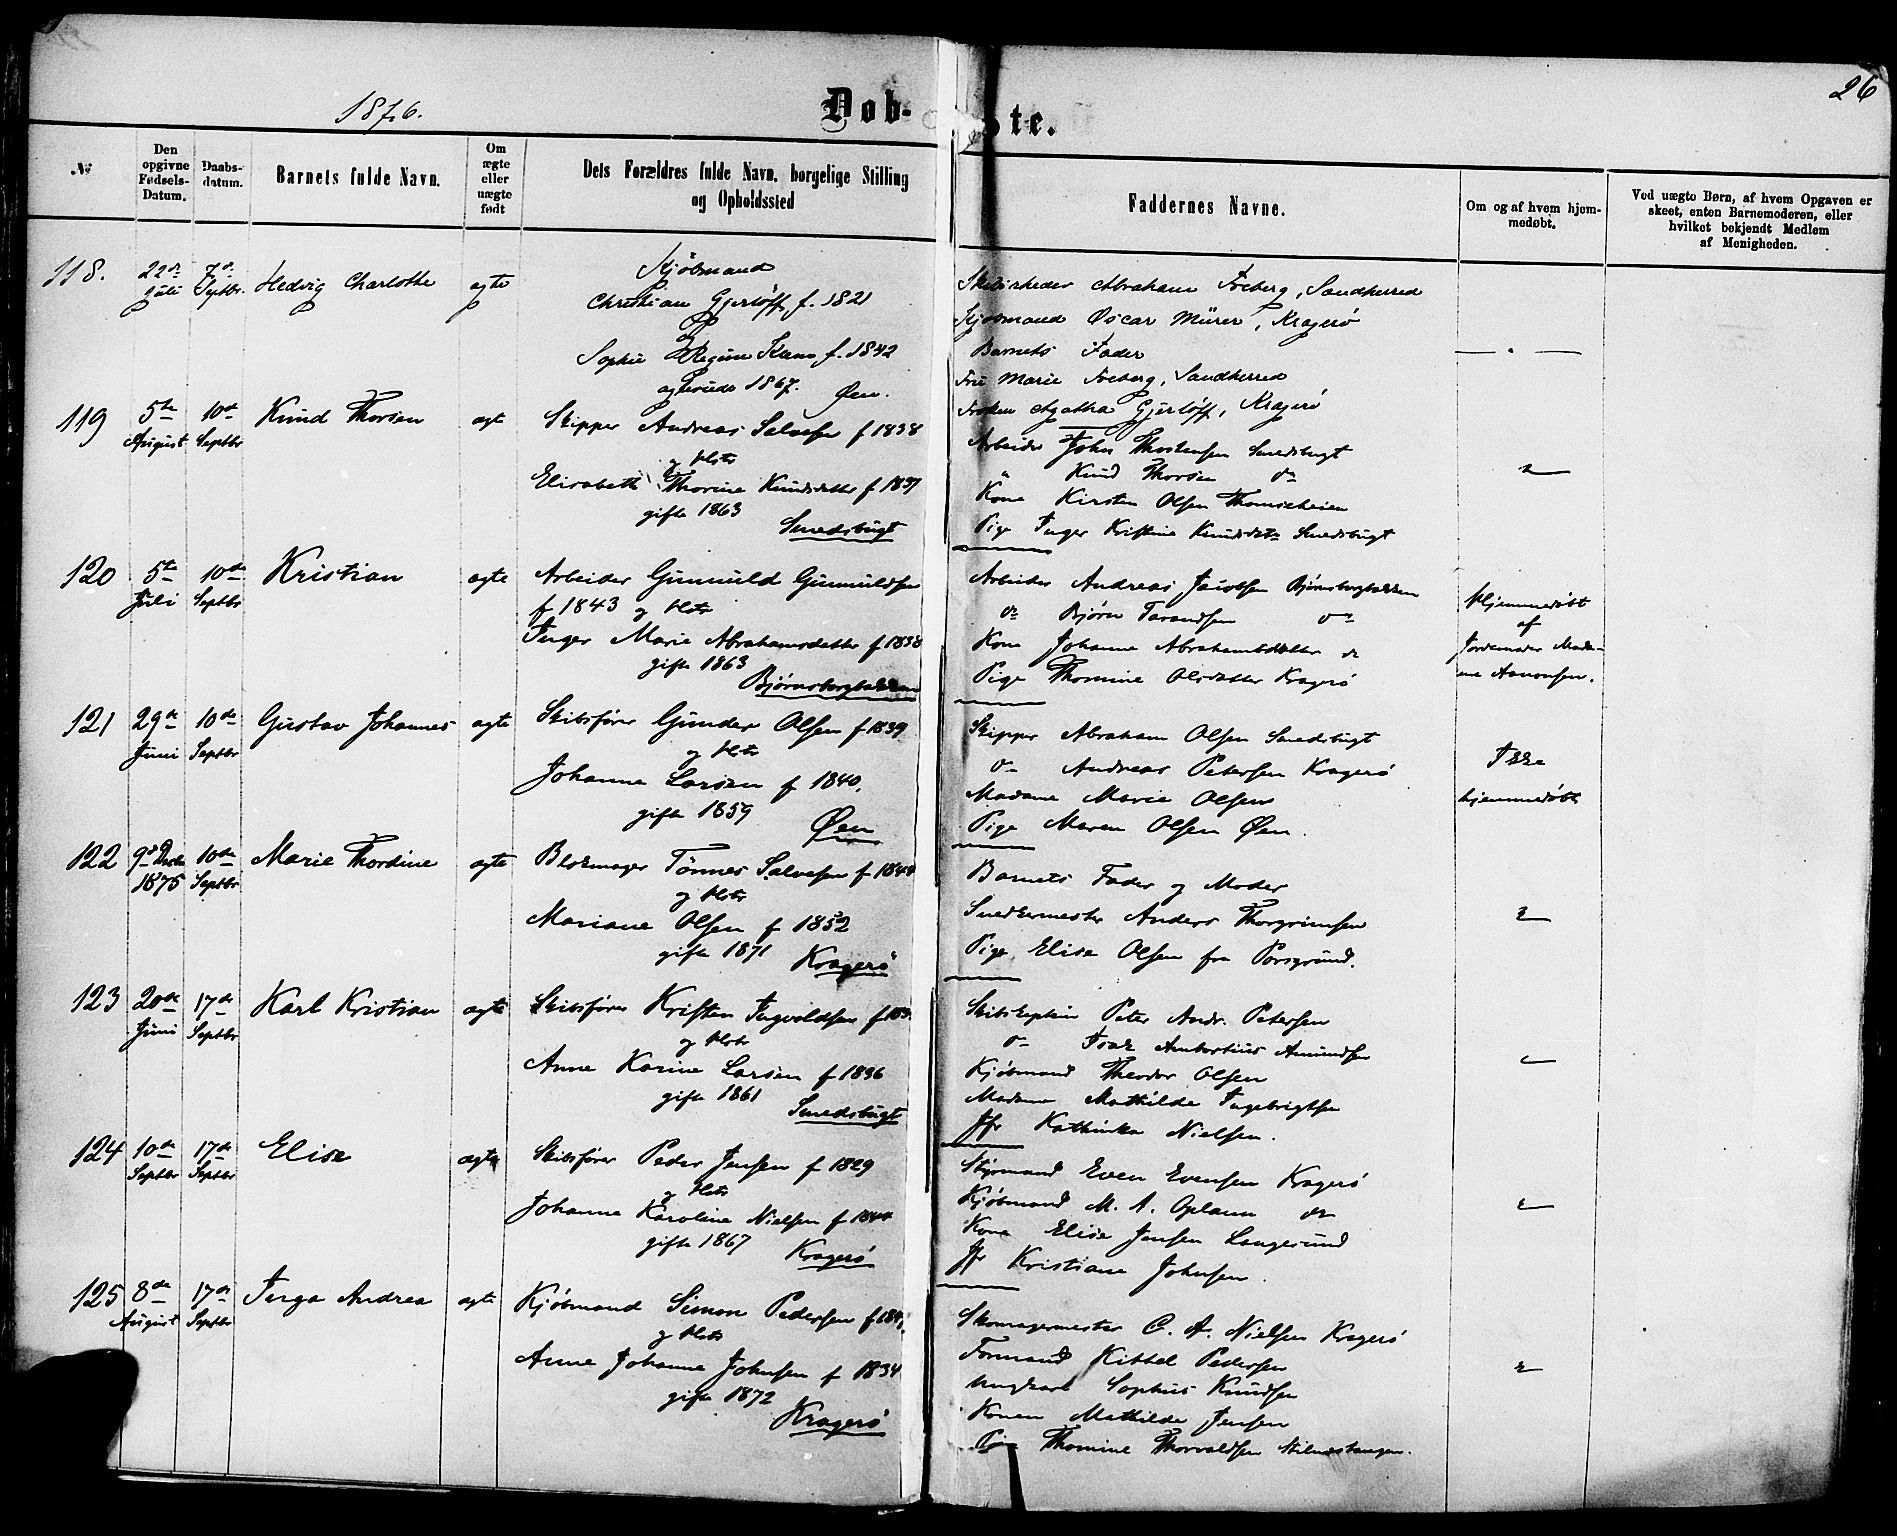 26
1876.
Døb- ste.
№
Den opgivne Fødsels-Datum.
Daabs-datum.
Barnets fulde Navn.
Om ægte eller uægte født
Dets Forældres fulde Navn, borgelige Stilling og Opholdssted
Faddernes Navne.
Om og af hvem hjem-medøbt.
Ved uægte Børn, af hvem Opgaven er skeet, enten Barnemoderen, eller hvilket bekjendt Medlem af Menigheden.
118. 22de Juli 7de Septbr. Hedvig Charlotte ægte
Kjöbmand
Christian Gjerlöff, f. 1821
og
Sophie Regine f. 1842
ægteviede 1867. Øen.
Skibsrheder Abraham Froberg, Sandherred
Kjöbmand Oscar Mürer, Kragerö
Barnets Fader
Fru Marie Froberg, Sandherred
Fröken Agatha Gjerlöff, Kragerö
119 5te August 10de Septbr Knud Thorsen ægte
Skipper Andreas Salvesen f 1838
og Hstr
Elisabeth Thorine Knudsdatter f 1837
gifte 1863
Smedsbugt
Arbeider John Thorstensen Smedsbugt
" Knud Thorsen do
Kone Kirsten Olsen Thomseheien
Pige Inger Kristine Knudsdtr Smedsbugt
120 5te Juli 10de Septbr Kristian ægte
Arbeider Gunnuld Gunnuldsen
f 1843 og Hstr
Inger Marie Abrahamsdatter f 1838
gifte 1863
Bjørnsborgbakken
Arbeider Andreas Jacobsen Bjørnsborgbakken
do Bjørn Tarandsen do
Kone Johanne Abrahamsdatter do
Pige Thomine Olsdatter Kragerö
Hjemmedøbt
af
Jordemoder Mada-
me Aanonsen.
121 29de Juni 10de Septbr Gustav Johannes ægte
Skibsfører Gunder Olsen f 1839
og Hstr
Johanne Larsen f 1840.
gifte 1859
Øen
Skipper Abraham Olsen Smedsbugt
do Andreas Petersen Kragerö
Madame Marie Olsen
Pige Maren Olsen Øen.
Ikke
hjemmedøbt
122 9de Decbr 1875 10de Septbr Marie Thordine ægte
Blokmager Tönnes Salvesen f 1844
og Hstr
Mariane Olsen f 1852
gifte 1871
Kragerö
Barnets Fader og Moder
Snedkermester Anders Thorgrimsen
Pige Elise Olsen fra Porsgrund.
123 20de Juni 17de Septbr Karl Kristian ægte
Skibsfører Kristen Ingvoldsen f 183
og Hstr
Anne Karine Larsen f 1836
gifte 1861
Smedsbugt
Skibskaptein Peter Andr. Petersen
do Isak Ambortius Amundsen
Kjøbmand Theodor Olsen
Madame Mathilde Ingebrigtsen
Jfr Kathinka Nielsen.
124 10de Septbr 17de Septbr Elise ægte
Skibsfører Peder Jensen f 1829
og Hstr
Johanne Karoline Nielsen f 1844
gifte 1867
Kragerö
Styrmand Even Evensen Kragerö
Kjøbmand M. A. Oplann do
Kone Elise Jensen Langesund
Jfr Kristiane Johnsen.
125 8de August 17de Septbr Inga Andrea ægte
Kjøbmand Simon Pedersen f 184
og Hstr
Anne Johanne Johnsen f 1834
gifte 1872
Kragerö
Skomagermester C. A. Nielsen Kragerö
Formand Kittel Pedersen
Ungkarl Sophus Knudsen
Konen Mathilde Jensen
Pige Thomine Thorvaldsen Stilnestangen.